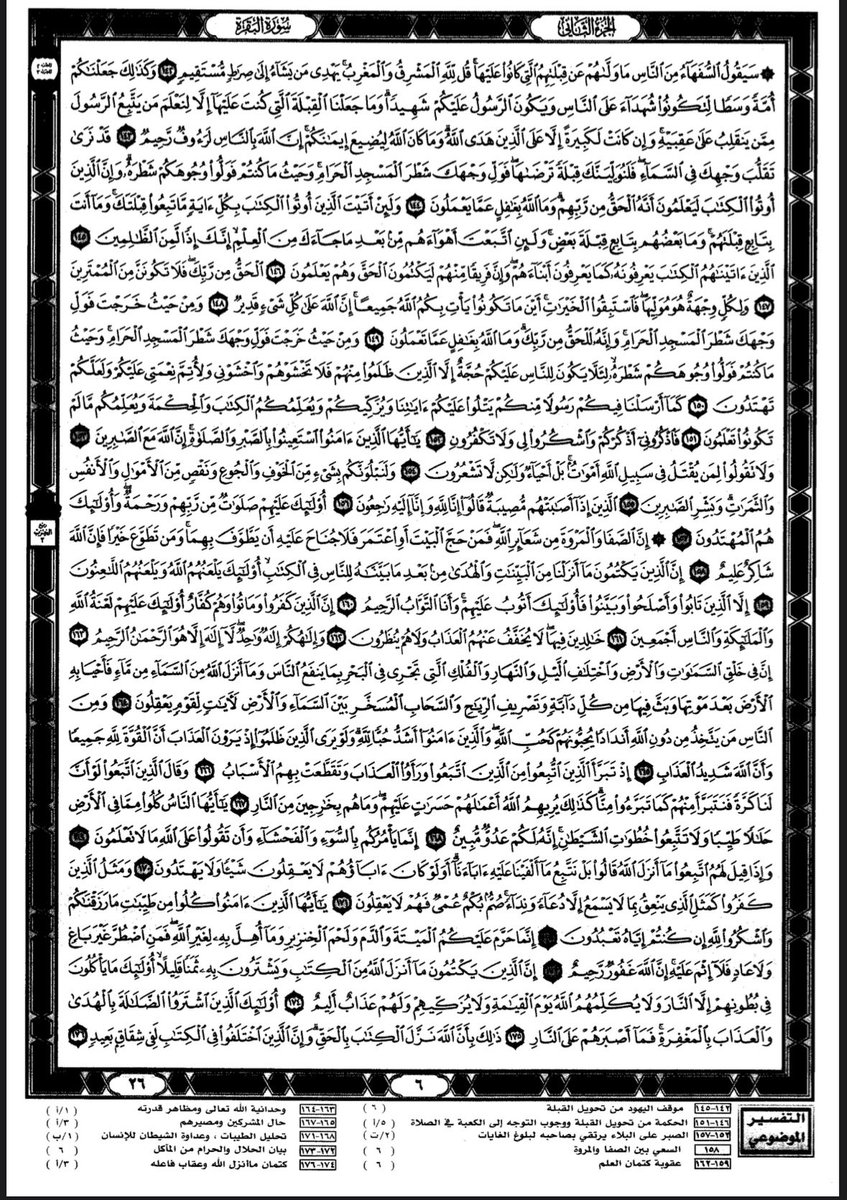 الجزء الثاني
سورة البقرة
۞ سَيَقُولُ السُّفَهَاءُ مِنَ النَّاسِ مَا وَلَّىٰهُمْ عَن قِبْلَتِهِمُ الَّتِي كَانُوا عَلَيْهَا ۚ قُل لِّلَّهِ الْمَشْرِقُ وَالْمَغْرِبُ ۚ يَهْدِي مَن يَشَاءُ إِلَىٰ صِرَٰطٍ مُّسْتَقِيمٍ ١٤٢ وَكَذَٰلِكَ جَعَلْنَٰكُمْ
أُمَّةً وَسَطًا لِّتَكُونُوا شُهَدَاءَ عَلَى النَّاسِ وَيَكُونَ الرَّسُولُ عَلَيْكُمْ شَهِيدًا ۗ وَمَا جَعَلْنَا الْقِبْلَةَ الَّتِي كُنتَ عَلَيْهَا إِلَّا لِنَعْلَمَ مَن يَتَّبِعُ الرَّسُولَ
مِمَّن يَنقَلِبُ عَلَىٰ عَقِبَيْهِ ۚ وَإِن كَانَتْ لَكَبِيرَةً إِلَّا عَلَى الَّذِينَ هَدَى اللَّهُ ۗ وَمَا كَانَ اللَّهُ لِيُضِيعَ إِيمَٰنَكُمْ ۚ إِنَّ اللَّهَ بِالنَّاسِ لَرَءُوفٌ رَّحِيمٌ ١٤٣ قَدْ نَرَىٰ
تَقَلُّبَ وَجْهِكَ فِي السَّمَاءِ ۖ فَلَنُوَلِّيَنَّكَ قِبْلَةً تَرْضَىٰهَا ۚ فَوَلِّ وَجْهَكَ شَطْرَ الْمَسْجِدِ الْحَرَامِ ۚ وَحَيْثُ مَا كُنتُمْ فَوَلُّوا وُجُوهَكُمْ شَطْرَهُ ۗ وَإِنَّ الَّذِينَ
أُوتُوا الْكِتَٰبَ لَيَعْلَمُونَ أَنَّهُ الْحَقُّ مِن رَّبِّهِمْ ۗ وَمَا اللَّهُ بِغَٰفِلٍ عَمَّا يَعْمَلُونَ ١٤٤ وَلَئِنْ أَتَيْتَ الَّذِينَ أُوتُوا الْكِتَٰبَ بِكُلِّ ءَايَةٍ مَّا تَبِعُوا قِبْلَتَكَ ۚ وَمَا أَنتَ
بِتَابِعٍ قِبْلَتَهُمْ ۚ وَمَا بَعْضُهُم بِتَابِعٍ قِبْلَةَ بَعْضٍ ۚ وَلَئِنِ اتَّبَعْتَ أَهْوَاءَهُم مِّن بَعْدِ مَا جَاءَكَ مِنَ الْعِلْمِ ۙ إِنَّكَ إِذًا لَّمِنَ الظَّٰلِمِينَ ١٤٥
الَّذِينَ ءَاتَيْنَٰهُمُ الْكِتَٰبَ يَعْرِفُونَهُ كَمَا يَعْرِفُونَ أَبْنَاءَهُمْ ۖ وَإِنَّ فَرِيقًا مِّنْهُمْ لَيَكْتُمُونَ الْحَقَّ وَهُمْ يَعْلَمُونَ ١٤٦ الْحَقُّ مِن رَّبِّكَ ۖ فَلَا تَكُونَنَّ مِنَ الْمُمْتَرِينَ
١٤٧ وَلِكُلٍّ وِجْهَةٌ هُوَ مُوَلِّيهَا ۖ فَاسْتَبِقُوا الْخَيْرَٰتِ ۚ أَيْنَ مَا تَكُونُوا يَأْتِ بِكُمُ اللَّهُ جَمِيعًا ۚ إِنَّ اللَّهَ عَلَىٰ كُلِّ شَيْءٍ قَدِيرٌ ١٤٨ وَمِنْ حَيْثُ خَرَجْتَ فَوَلِّ
وَجْهَكَ شَطْرَ الْمَسْجِدِ الْحَرَامِ ۖ وَإِنَّهُ لَلْحَقُّ مِن رَّبِّكَ ۗ وَمَا اللَّهُ بِغَٰفِلٍ عَمَّا تَعْمَلُونَ ١٤٩ وَمِنْ حَيْثُ خَرَجْتَ فَوَلِّ وَجْهَكَ شَطْرَ الْمَسْجِدِ الْحَرَامِ ۚ وَحَيْثُ
مَا كُنتُمْ فَوَلُّوا وُجُوهَكُمْ شَطْرَهُ لِئَلَّا يَكُونَ لِلنَّاسِ عَلَيْكُمْ حُجَّةٌ إِلَّا الَّذِينَ ظَلَمُوا مِنْهُمْ فَلَا تَخْشَوْهُمْ وَاخْشَوْنِي وَلِأُتِمَّ نِعْمَتِي عَلَيْكُمْ وَلَعَلَّكُمْ
تَهْتَدُونَ ١٥٠ كَمَا أَرْسَلْنَا فِيكُمْ رَسُولًا مِّنكُمْ يَتْلُوا عَلَيْكُمْ ءَايَٰتِنَا وَيُزَكِّيكُمْ وَيُعَلِّمُكُمُ الْكِتَٰبَ وَالْحِكْمَةَ وَيُعَلِّمُكُم مَّا لَمْ
تَكُونُوا تَعْلَمُونَ ١٥١ فَاذْكُرُونِي أَذْكُرْكُمْ وَاشْكُرُوا لِي وَلَا تَكْفُرُونِ ١٥٢ يَٰأَيُّهَا الَّذِينَ ءَامَنُوا اسْتَعِينُوا بِالصَّبْرِ وَالصَّلَوٰةِ ۚ إِنَّ اللَّهَ مَعَ الصَّٰبِرِينَ ١٥٣
وَلَا تَقُولُوا لِمَن يُقْتَلُ فِي سَبِيلِ اللَّهِ أَمْوَٰتٌ ۚ بَلْ أَحْيَاءٌ وَلَٰكِن لَّا تَشْعُرُونَ ١٥٤ وَلَنَبْلُوَنَّكُم بِشَيْءٍ مِّنَ الْخَوْفِ وَالْجُوعِ وَنَقْصٍ مِّنَ الْأَمْوَٰلِ وَالْأَنفُسِ
وَالثَّمَرَٰتِ ۗ وَبَشِّرِ الصَّٰبِرِينَ ١٥٥ الَّذِينَ إِذَا أَصَٰبَتْهُم مُّصِيبَةٌ قَالُوا إِنَّا لِلَّهِ وَإِنَّا إِلَيْهِ رَٰجِعُونَ ١٥٦ أُولَٰئِكَ عَلَيْهِمْ صَلَوَٰتٌ مِّن رَّبِّهِمْ وَرَحْمَةٌ ۖ وَأُولَٰئِكَ
هُمُ الْمُهْتَدُونَ ١٥٧ ۞ إِنَّ الصَّفَا وَالْمَرْوَةَ مِن شَعَائِرِ اللَّهِ ۖ فَمَنْ حَجَّ الْبَيْتَ أَوِ اعْتَمَرَ فَلَا جُنَاحَ عَلَيْهِ أَن يَطَّوَّفَ بِهِمَا ۚ وَمَن تَطَوَّعَ خَيْرًا فَإِنَّ اللَّهَ
شَاكِرٌ عَلِيمٌ ١٥٨ إِنَّ الَّذِينَ يَكْتُمُونَ مَا أَنزَلْنَا مِنَ الْبَيِّنَٰتِ وَالْهُدَىٰ مِن بَعْدِ مَا بَيَّنَّٰهُ لِلنَّاسِ فِي الْكِتَٰبِ ۙ أُولَٰئِكَ يَلْعَنُهُمُ اللَّهُ وَيَلْعَنُهُمُ اللَّٰعِنُونَ
١٥٩ إِلَّا الَّذِينَ تَابُوا وَأَصْلَحُوا وَبَيَّنُوا فَأُولَٰئِكَ أَتُوبُ عَلَيْهِمْ ۚ وَأَنَا التَّوَّابُ الرَّحِيمُ ١٦٠ إِنَّ الَّذِينَ كَفَرُوا وَمَاتُوا وَهُمْ كُفَّارٌ أُولَٰئِكَ عَلَيْهِمْ لَعْنَةُ اللَّهِ
وَالْمَلَٰئِكَةِ وَالنَّاسِ أَجْمَعِينَ ١٦١ خَٰلِدِينَ فِيهَا ۖ لَا يُخَفَّفُ عَنْهُمُ الْعَذَابُ وَلَا هُمْ يُنظَرُونَ ١٦٢ وَإِلَٰهُكُمْ إِلَٰهٌ وَٰحِدٌ ۖ لَّا إِلَٰهَ إِلَّا هُوَ الرَّحْمَٰنُ الرَّحِيمُ ١٦٣
إِنَّ فِي خَلْقِ السَّمَٰوَٰتِ وَالْأَرْضِ وَاخْتِلَٰفِ الَّيْلِ وَالنَّهَارِ وَالْفُلْكِ الَّتِي تَجْرِي فِي الْبَحْرِ بِمَا يَنفَعُ النَّاسَ وَمَا أَنزَلَ اللَّهُ مِنَ السَّمَاءِ مِن مَّاءٍ فَأَحْيَا بِهِ
الْأَرْضَ بَعْدَ مَوْتِهَا وَبَثَّ فِيهَا مِن كُلِّ دَابَّةٍ وَتَصْرِيفِ الرِّيَٰحِ وَالسَّحَابِ الْمُسَخَّرِ بَيْنَ السَّمَاءِ وَالْأَرْضِ لَءَايَٰتٍ لِّقَوْمٍ يَعْقِلُونَ ١٦٤ وَمِنَ
النَّاسِ مَن يَتَّخِذُ مِن دُونِ اللَّهِ أَندَادًا يُحِبُّونَهُمْ كَحُبِّ اللَّهِ ۖ وَالَّذِينَ ءَامَنُوا أَشَدُّ حُبًّا لِّلَّهِ ۗ وَلَوْ يَرَى الَّذِينَ ظَلَمُوا إِذْ يَرَوْنَ الْعَذَابَ أَنَّ الْقُوَّةَ لِلَّهِ جَمِيعًا
وَأَنَّ اللَّهَ شَدِيدُ الْعَذَابِ ١٦٥ إِذْ تَبَرَّأَ الَّذِينَ اتُّبِعُوا مِنَ الَّذِينَ اتَّبَعُوا وَرَأَوُا الْعَذَابَ وَتَقَطَّعَتْ بِهِمُ الْأَسْبَابُ ١٦٦ وَقَالَ الَّذِينَ اتَّبَعُوا لَوْ أَنَّ
لَنَا كَرَّةً فَنَتَبَرَّأَ مِنْهُمْ كَمَا تَبَرَّءُوا مِنَّا ۗ كَذَٰلِكَ يُرِيهِمُ اللَّهُ أَعْمَٰلَهُمْ حَسَرَٰتٍ عَلَيْهِمْ ۖ وَمَا هُم بِخَٰرِجِينَ مِنَ النَّارِ ١٦٧ يَٰأَيُّهَا النَّاسُ كُلُوا مِمَّا فِي الْأَرْضِ
حَلَٰلًا طَيِّبًا وَلَا تَتَّبِعُوا خُطُوَٰتِ الشَّيْطَٰنِ ۚ إِنَّهُ لَكُمْ عَدُوٌّ مُّبِينٌ ١٦٨ إِنَّمَا يَأْمُرُكُم بِالسُّوءِ وَالْفَحْشَاءِ وَأَن تَقُولُوا عَلَى اللَّهِ مَا لَا تَعْلَمُونَ ١٦٩
وَإِذَا قِيلَ لَهُمُ اتَّبِعُوا مَا أَنزَلَ اللَّهُ قَالُوا بَلْ نَتَّبِعُ مَا أَلْفَيْنَا عَلَيْهِ ءَابَاءَنَا ۗ أَوَلَوْ كَانَ ءَابَاؤُهُمْ لَا يَعْقِلُونَ شَيْئًا وَلَا يَهْتَدُونَ ١٧٠ وَمَثَلُ الَّذِينَ
كَفَرُوا كَمَثَلِ الَّذِي يَنْعِقُ بِمَا لَا يَسْمَعُ إِلَّا دُعَاءً وَنِدَاءً ۚ صُمٌّ بُكْمٌ عُمْيٌ فَهُمْ لَا يَعْقِلُونَ ١٧١ يَٰأَيُّهَا الَّذِينَ ءَامَنُوا كُلُوا مِن طَيِّبَٰتِ مَا رَزَقْنَٰكُمْ
وَاشْكُرُوا لِلَّهِ إِن كُنتُمْ إِيَّاهُ تَعْبُدُونَ ١٧٢ إِنَّمَا حَرَّمَ عَلَيْكُمُ الْمَيْتَةَ وَالدَّمَ وَلَحْمَ الْخِنزِيرِ وَمَا أُهِلَّ بِهِ لِغَيْرِ اللَّهِ ۖ فَمَنِ اضْطُرَّ غَيْرَ بَاغٍ
وَلَا عَادٍ فَلَا إِثْمَ عَلَيْهِ ۚ إِنَّ اللَّهَ غَفُورٌ رَّحِيمٌ ١٧٣ إِنَّ الَّذِينَ يَكْتُمُونَ مَا أَنزَلَ اللَّهُ مِنَ الْكِتَٰبِ وَيَشْتَرُونَ بِهِ ثَمَنًا قَلِيلًا ۙ أُولَٰئِكَ مَا يَأْكُلُونَ
فِي بُطُونِهِمْ إِلَّا النَّارَ وَلَا يُكَلِّمُهُمُ اللَّهُ يَوْمَ الْقِيَٰمَةِ وَلَا يُزَكِّيهِمْ وَلَهُمْ عَذَابٌ أَلِيمٌ ١٧٤ أُولَٰئِكَ الَّذِينَ اشْتَرَوُا الضَّلَٰلَةَ بِالْهُدَىٰ
وَالْعَذَابَ بِالْمَغْفِرَةِ ۚ فَمَا أَصْبَرَهُمْ عَلَى النَّارِ ١٧٥ ذَٰلِكَ بِأَنَّ اللَّهَ نَزَّلَ الْكِتَٰبَ بِالْحَقِّ ۗ وَإِنَّ الَّذِينَ اخْتَلَفُوا فِي الْكِتَٰبِ لَفِي شِقَاقٍ بَعِيدٍ ١٧٦
ربع الحزب ٣
٦
٢٦
التفسير الموضوعي
١٤٢-١٤٥ موقف اليهود من تحويل القبلة (٦)
١٤٦-١٥١ الحكمة من تحويل القبلة ووجوب التوجه إلى الكعبة في الصلاة (٥/أ)
١٥٢-١٥٧ الصبر على البلاء يرتقي بصاحبه لبلوغ الغايات (٢/ت)
١٥٨ السعي بين الصفا والمروة (٦)
١٥٩-١٦٢ عقوبة كتمان العلم (٦)
١٦٣-١٦٤ وحدانية الله تعالى ومظاهر قدرته (١/أ)
١٦٥-١٦٧ حال المشركين ومصيرهم (٣/أ)
١٦٨-١٧١ تحليل الطيبات ، وعداوة الشيطان للإنسان (١/ب)
١٧٢-١٧٣ بيان الحلال والحرام من المأكل (٦)
١٧٤-١٧٦ كتمان ماأنزل الله وعقاب فاعله (٣/أ)